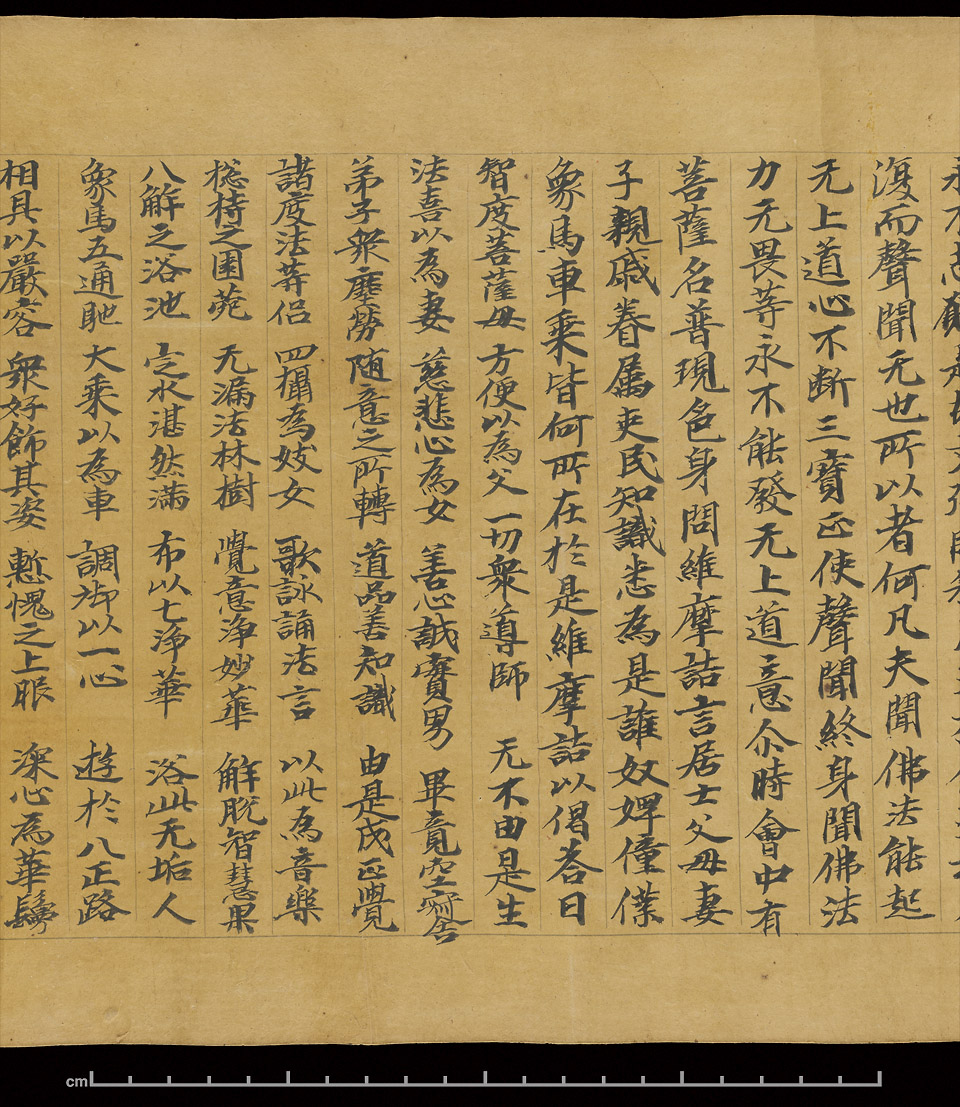 復而聲聞无也所以者何凡夫聞佛法能起
无上道心不斷三寶正使聲聞終身聞佛法
力无畏等永不能發无上道意尒時會中有
菩薩名普現色身問維摩詰言居士父母妻
子親戚眷属吏民知識悉為是誰奴婢僮僕
象馬車乗皆何所在於是維摩詰以偈荅曰
智度菩薩母 方便以為父 一切衆導師 无不由是生
法喜以為妻 慈悲心為女 善心誠實男 畢竟空寂舍
弟子衆塵勞 随意之所轉 道品善知識 由是成正覺
諸度法等侣 四攝為妓女 歌詠誦法言 以此為音樂
揔持之園菀 无漏法林樹 覺意淨妙華 解脱智慧果
八解之浴池 定水湛然满 布以七淨華 浴此无垢人
象馬五通馳 大乗以為車 調御以一心 遊於八正路
相具以嚴容 衆好飾其姿 慙愧之上服 深心為華鬘